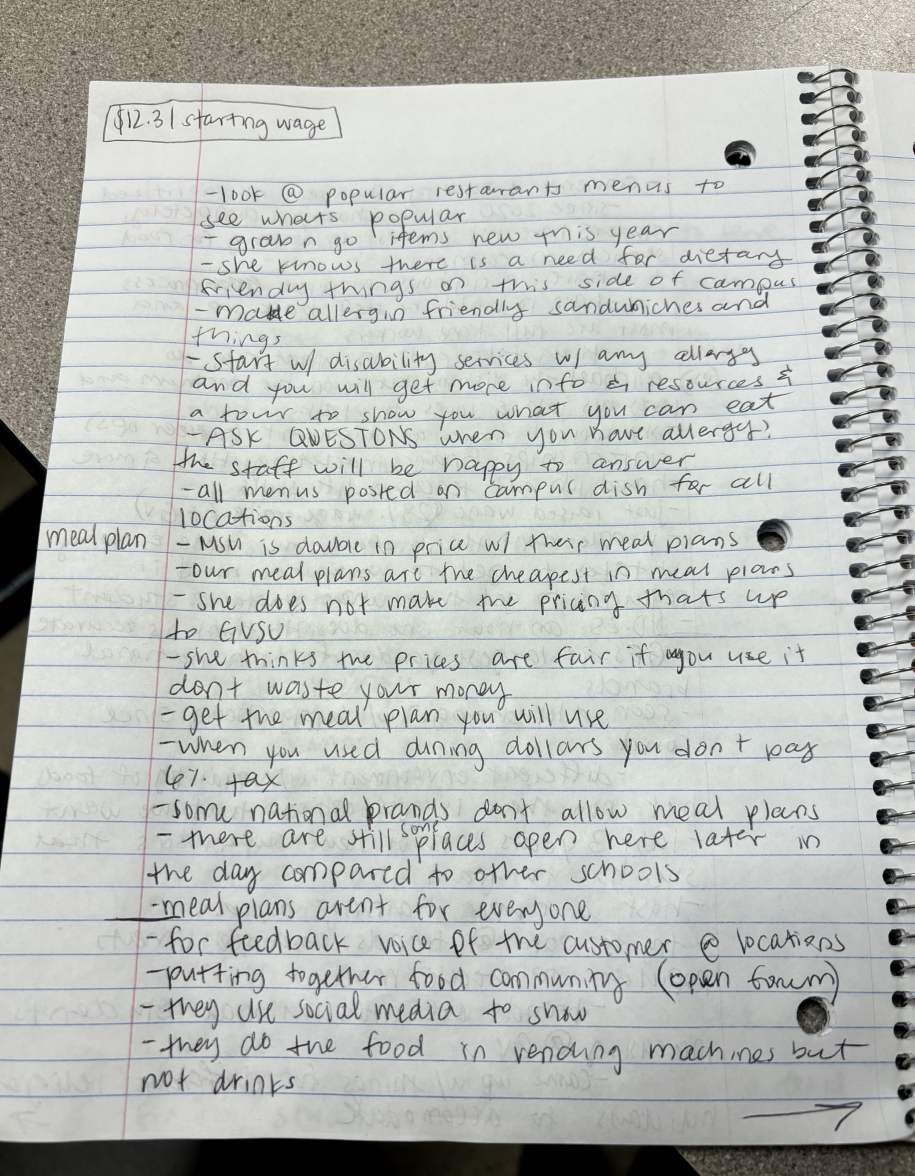 $12.31 starting wage
-look @ popular restaurants menus to
see whats popular
- grab n go items new this year
-she knows there is a need for dietary
friendly things on this side of campus
-made allergin friendly sandwiches and
things
- Start w/ disability services w/ any allergy
and you will get more info & resources &
a tour to show you what you can eat
-ASK QUESTONS when you have allergy!
the staff will be happy to answer
-all menus posted on campus dish for all
locations
meal plan - MSU is double in price w/ their meal plans
-our meal plans are the cheapest in meal plans
- she does not make the pricing thats up
to GVSU
-she thinks the prices are fair if you use it
dont waste your money
- get the meal plan you will use
-when you used dining dollars you don't pay
6% tax
-some national brands dont allow meal plans
- there are still some places open here later in
the day compared to other schools
-meal plans arent for everyone
-for feedback voice of the customer @ locations
-putting together food community (open forum)
- they use social media to show
-they do the food in vending machines but
not drinks